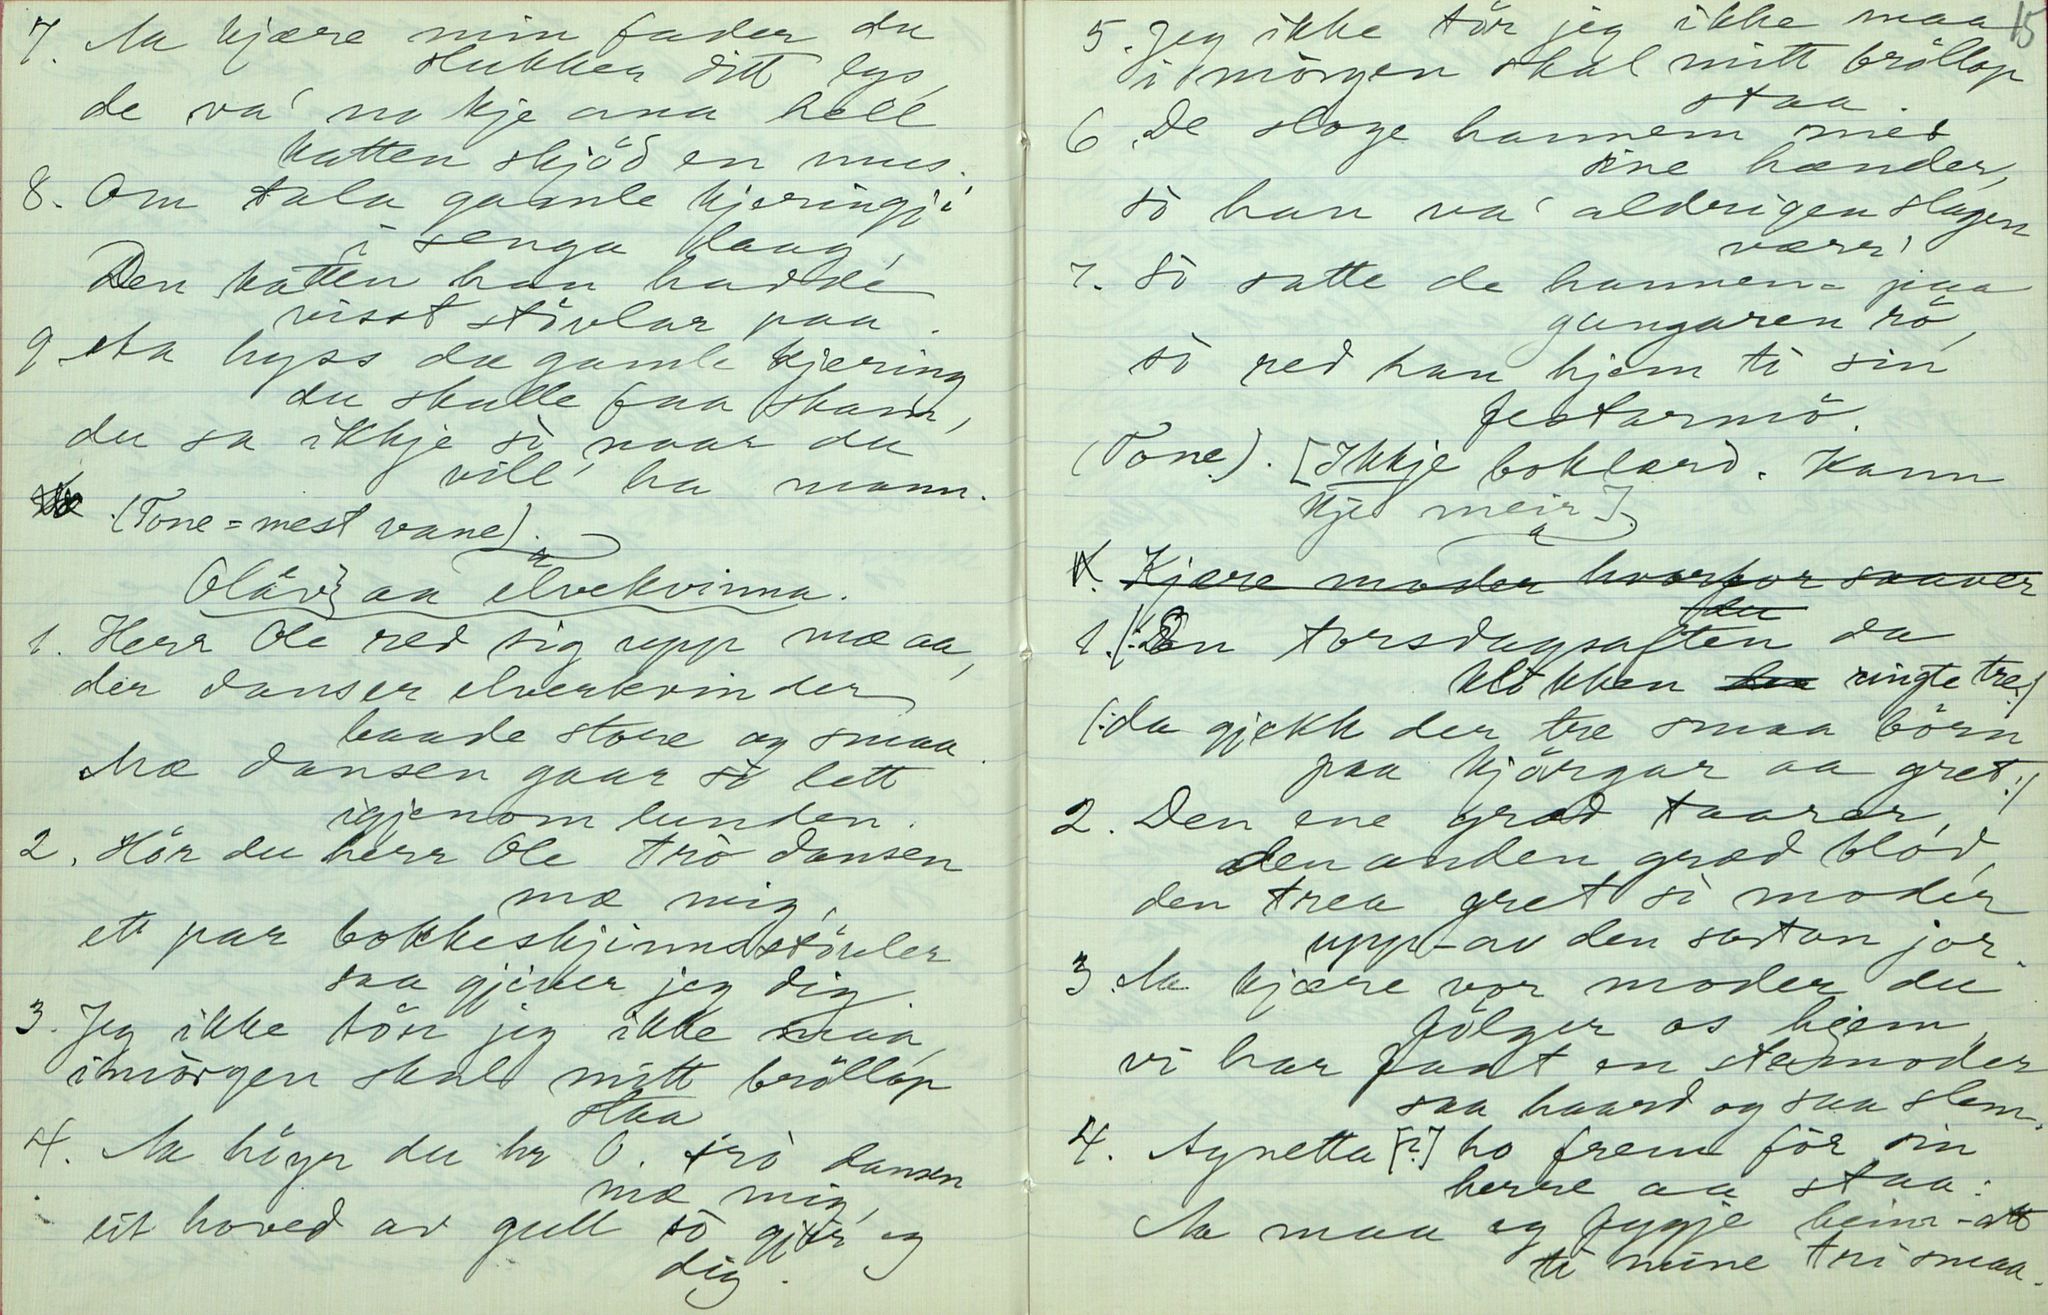 7. Aa kjære min fader du
slukker ditt lys,
de va' no kje ana hell
katten skjöd en mus.
8. Om tala gamle kjeringji
i senga laag,
Den katten han hadde
visst stövlar paa.
9 Aa hyss du gamle kjering
du skulle faa skam,
du sa ikkje så naar du
vill' ha mann.
(Tone = mest vane).
Olâv aa elvekvinna.
1. Herr Ole red sig upp mæ aa,
der danser elverkvinder
baade store og smaa.
Mæ dansen gaar så lett
igjenom lunden.
2. Hör du herr Ole trö dansen
mæ mig,
et par bokkeskjinnsstövler
saa gjiver jeg dig.
3. Jeg ikke tör jeg ikke maa,
imörgen skal mitt bröllop
staa
4. Aa höyr du hr O. trö dansen
mæ mig,
eit hoved av gull så gjiv eg
dig.
15
5. Jeg ikke tör jeg ikke maa
i mörgen skal mitt bröllop
staa.
6 De sloge hannem med
sine hænder,
så han va' aldrigen slagen
værr'
7. Så satte de hannem paa
gangaren rö,
så red han hjem ti sin
festarmö.
(Tone). [Ikkje boklærd. Kann
kje meir].
1. Kjære moder hvorfor saaver
du
1. /: Den torsdagsaften da
klokken ringte tre :/
/: da gjekk der tre smaa börn
paa kjörgar aa gret :/
2. Den ene græd taarer,
den anden græd blöd,
den trea gret si moder
upp-av den sortan jor.
3 Aa kjære vor moder du
fölger os hjem,
vi har faat en stemoder
saa haard og saa slem.
4. Agnetta [?] ho frem för sin
herre aa staa:
Aa maa eg fygje heim-att
ti mine tri smaa.